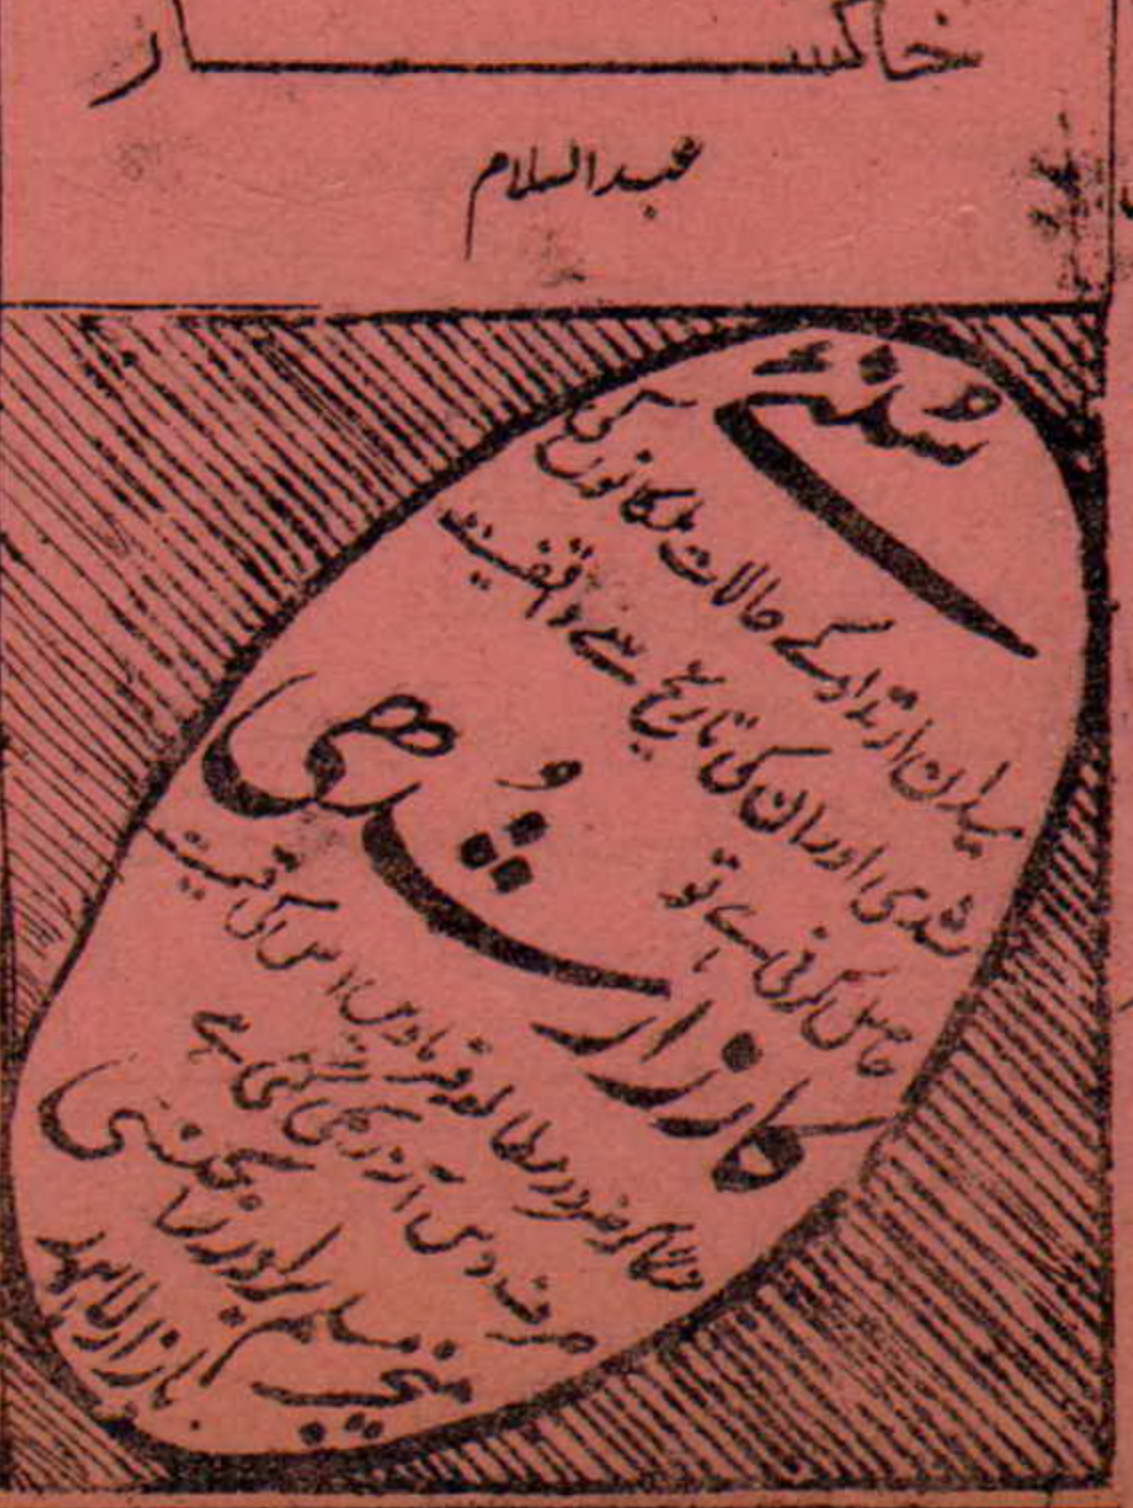 خاکسار
عبدالسلام
سُنئے
میدان ارتداد کے حالات ملکانوں کی
شدھی اور ان کی تاریخ سے واقفیت
حاصل کرنی ہے تو
کارزار شُدھی
منگا کر ضرور مطالعہ فرماویں اس کی قیمت
صرف دس آنہ رکھی گئی ہے
منیجر مسلم برادرز ایجنسی
بازار لاہور